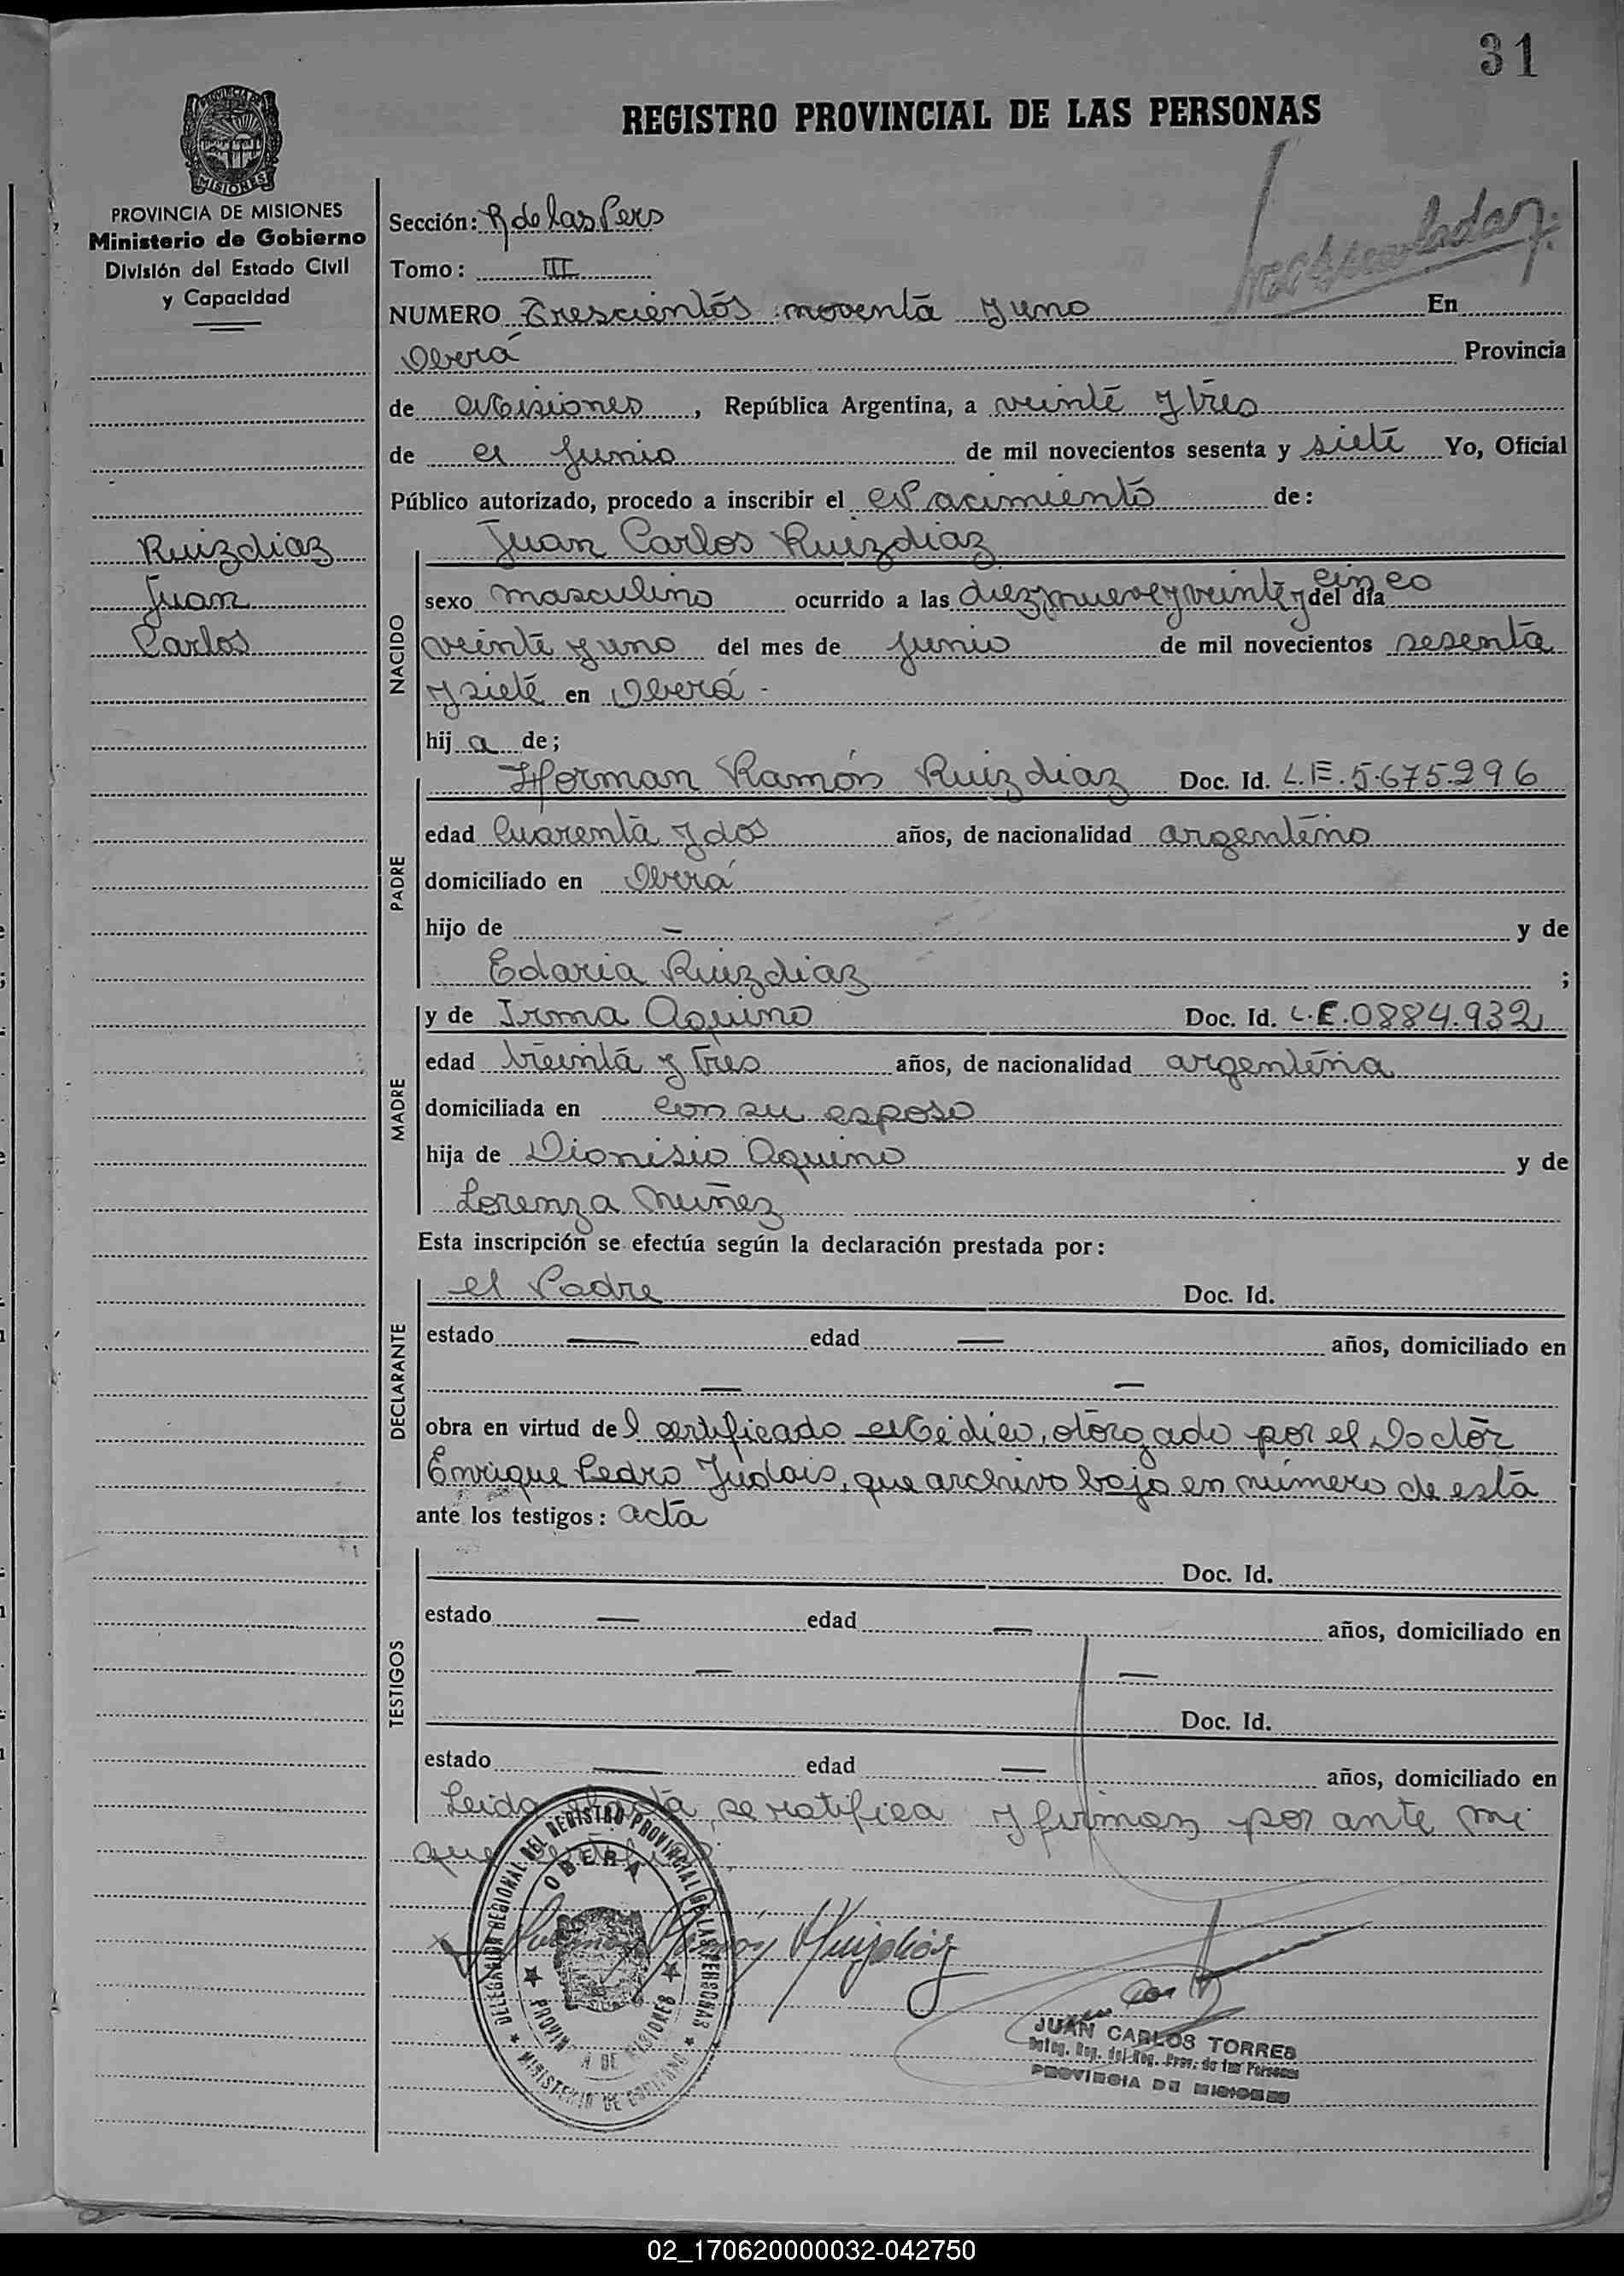 31
REGISTRO PROVINCIAL DE LAS PERSONAS
PROVINCIA DE MISIONES
MISIONES
PROVINCIA DE MISIONES
Ministerio de Gobierno
División del Estado Civil
y Capacidad
Ruizdiaz
Juan
Carlos
Sección: R de las Pers
Tomo: III
NUMERO Trescientos noventa y uno En
Oberá Provincia
de Misiones, República Argentina, a veinte y tres
de Junio de mil novecientos sesenta y siete Yo, Oficial
Público autorizado, procedo a inscribir el Nacimiento de:
NACIDO
Juan Carlos Ruizdiaz
sexo masculino ocurrido a las diez y nueve y veinte y cinco del día
veinte y uno del mes de Junio de mil novecientos sesenta
y siete en Oberá -
hij a de;
PADRE
Ramón Ruizdiaz Doc. Id. L.E. 5.675.296
edad Cuarenta y dos años, de nacionalidad argentino
domiciliado en Oberá
hijo de — y de
Edaria Ruizdiaz ;
MADRE
y de Irma Aquino Doc. Id. L.E. 0884.932
edad treinta y tres años, de nacionalidad argentina
domiciliada en con su esposo
hija de Dionisio Aquino y de
Lorenza Nuñez
Esta inscripción se efectúa según la declaración prestada por:
DECLARANTE
el Padre Doc. Id.
estado — edad — años, domiciliado en
— —
obra en virtud de l certificado Médico, otorgado por el Doctor
Enrique Pedro que archivo bajo en número de esta
ante los testigos: acta
TESTIGOS
Doc. Id.
estado — edad — años, domiciliado en
— —
Doc. Id.
estado — edad — años, domiciliado en
Leida el acta, se ratifica y firman por ante mi
que
DELEGACION REGIONAL DEL REGISTRO PROVINCIAL DE LAS PERSONAS
OBERA
PROVINCIA DE MISIONES
MINISTERIO DE GOBIERNO
Ramón Ruizdiaz
JUAN CARLOS TORRES
Deleg. Reg. del Reg. Prov. de las Personas
PROVINCIA DE MISIONES
02_170620000032-042750